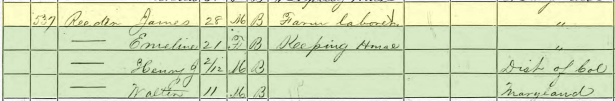 537 Reeder James 28 M B Farm laborer "
— Emeline 21 F B Keeping House "
— Henry J 2/12 M B Dist of Col
— Walter 11 M B Maryland